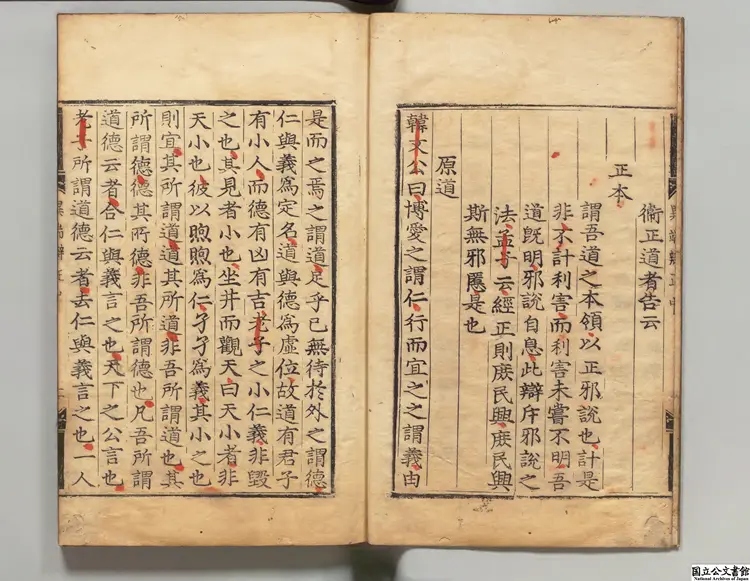 衞正道者告云
正本
謂吾道之本領以正邪說也計是
非不計利害而利害未嘗不明吾
道旣明邪說自息此辯斥邪說之
法孟子云經正則庶民興庶民興
斯無邪慝是也
原道
韓文公曰博愛之謂仁行而宜之之謂義由
是而之焉之謂道足乎已無待於外之謂德
仁與義爲定名道與德爲虛位故道有君子
有小人而德有凶有吉老子之小仁義非毀
之也其見者小也坐井而觀天曰天小者非
天小也彼以煦煦爲仁孑孑爲義其小之也
則宜其所謂道道其所道非吾所謂道也其
所謂德德其所德非吾所謂德也凡吾所謂
道德云者合仁與義言之也天下之公言也
老子所謂道德云者去仁與義言之也一人
異端辯正中
国立公文書館
National Archives of Japan